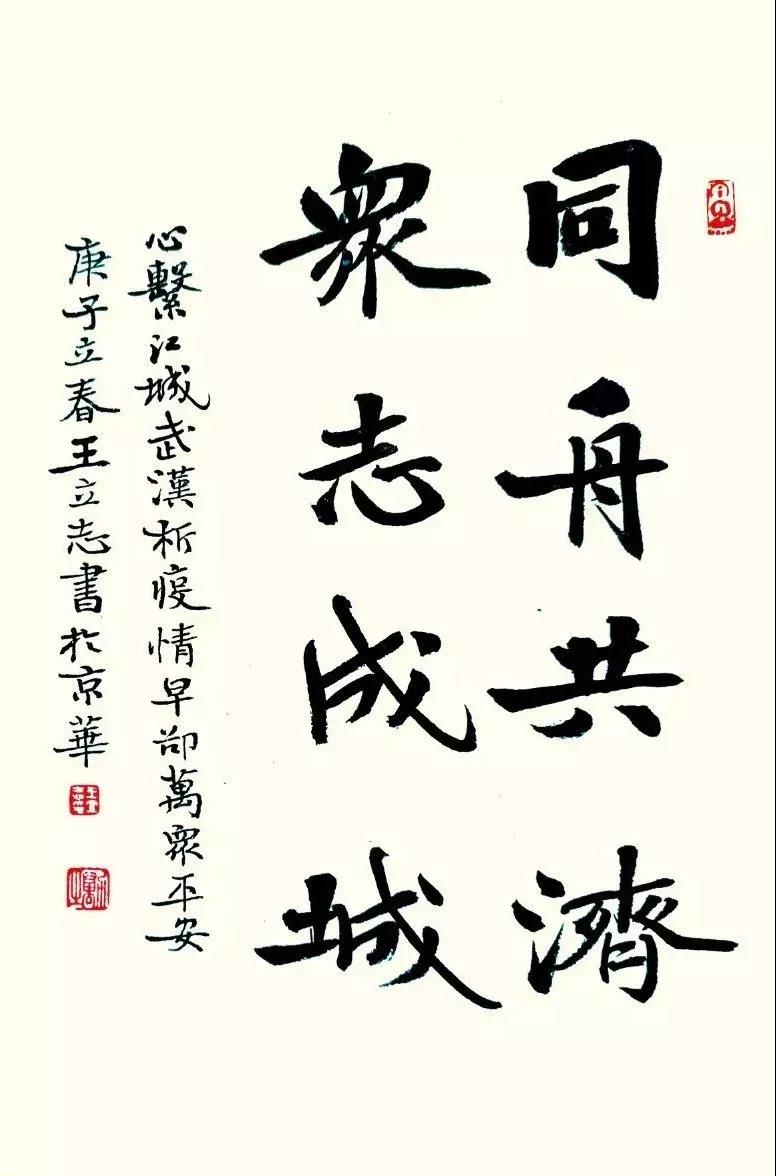 同舟共濟
眾志成城
心繫江城武漢祈疫情早卻萬眾平安
庚子立春王立志書於京華